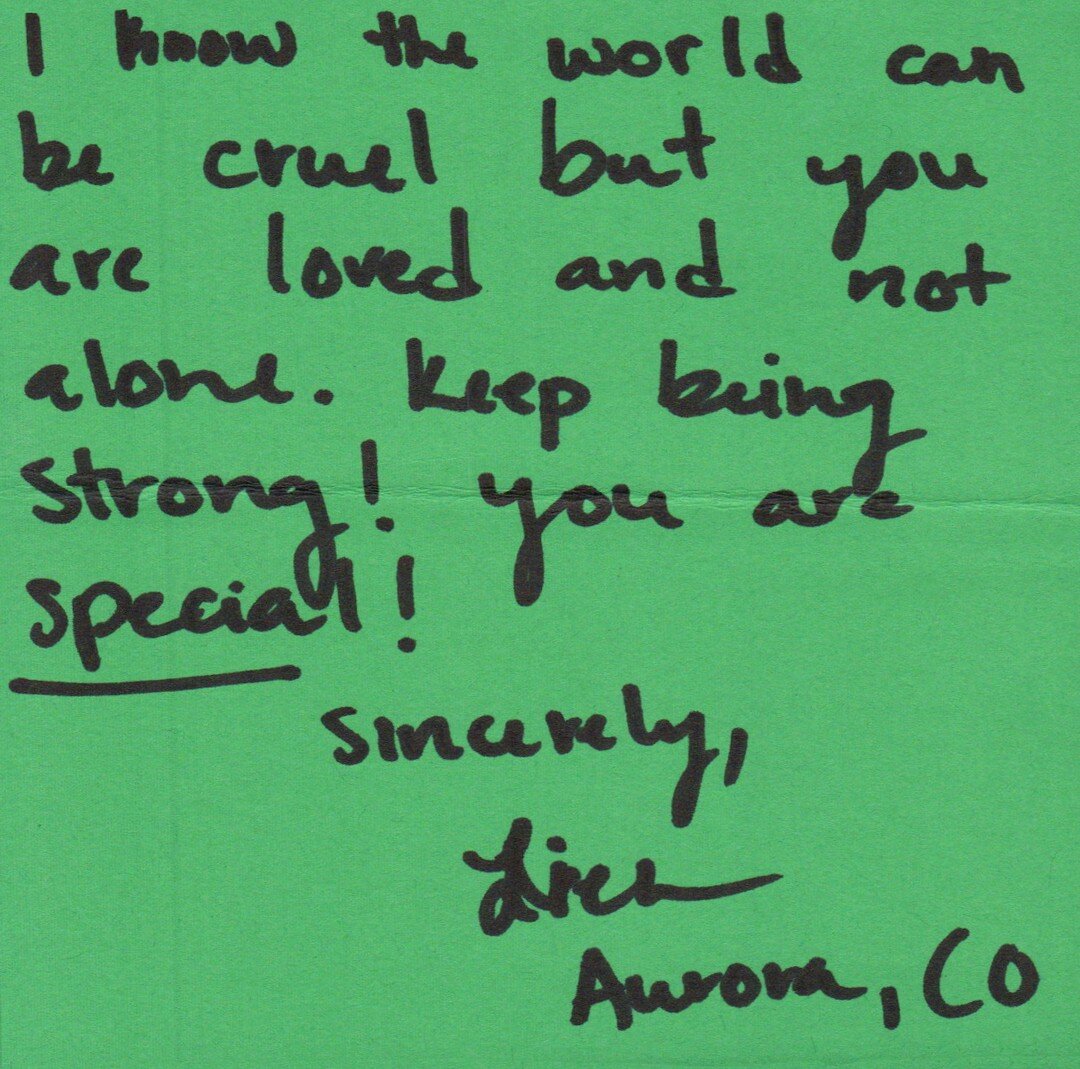 I know the world can
be cruel but you
are loved and not
alone. Keep being
strong! you are
special!
sincerely,
Aurora, CO